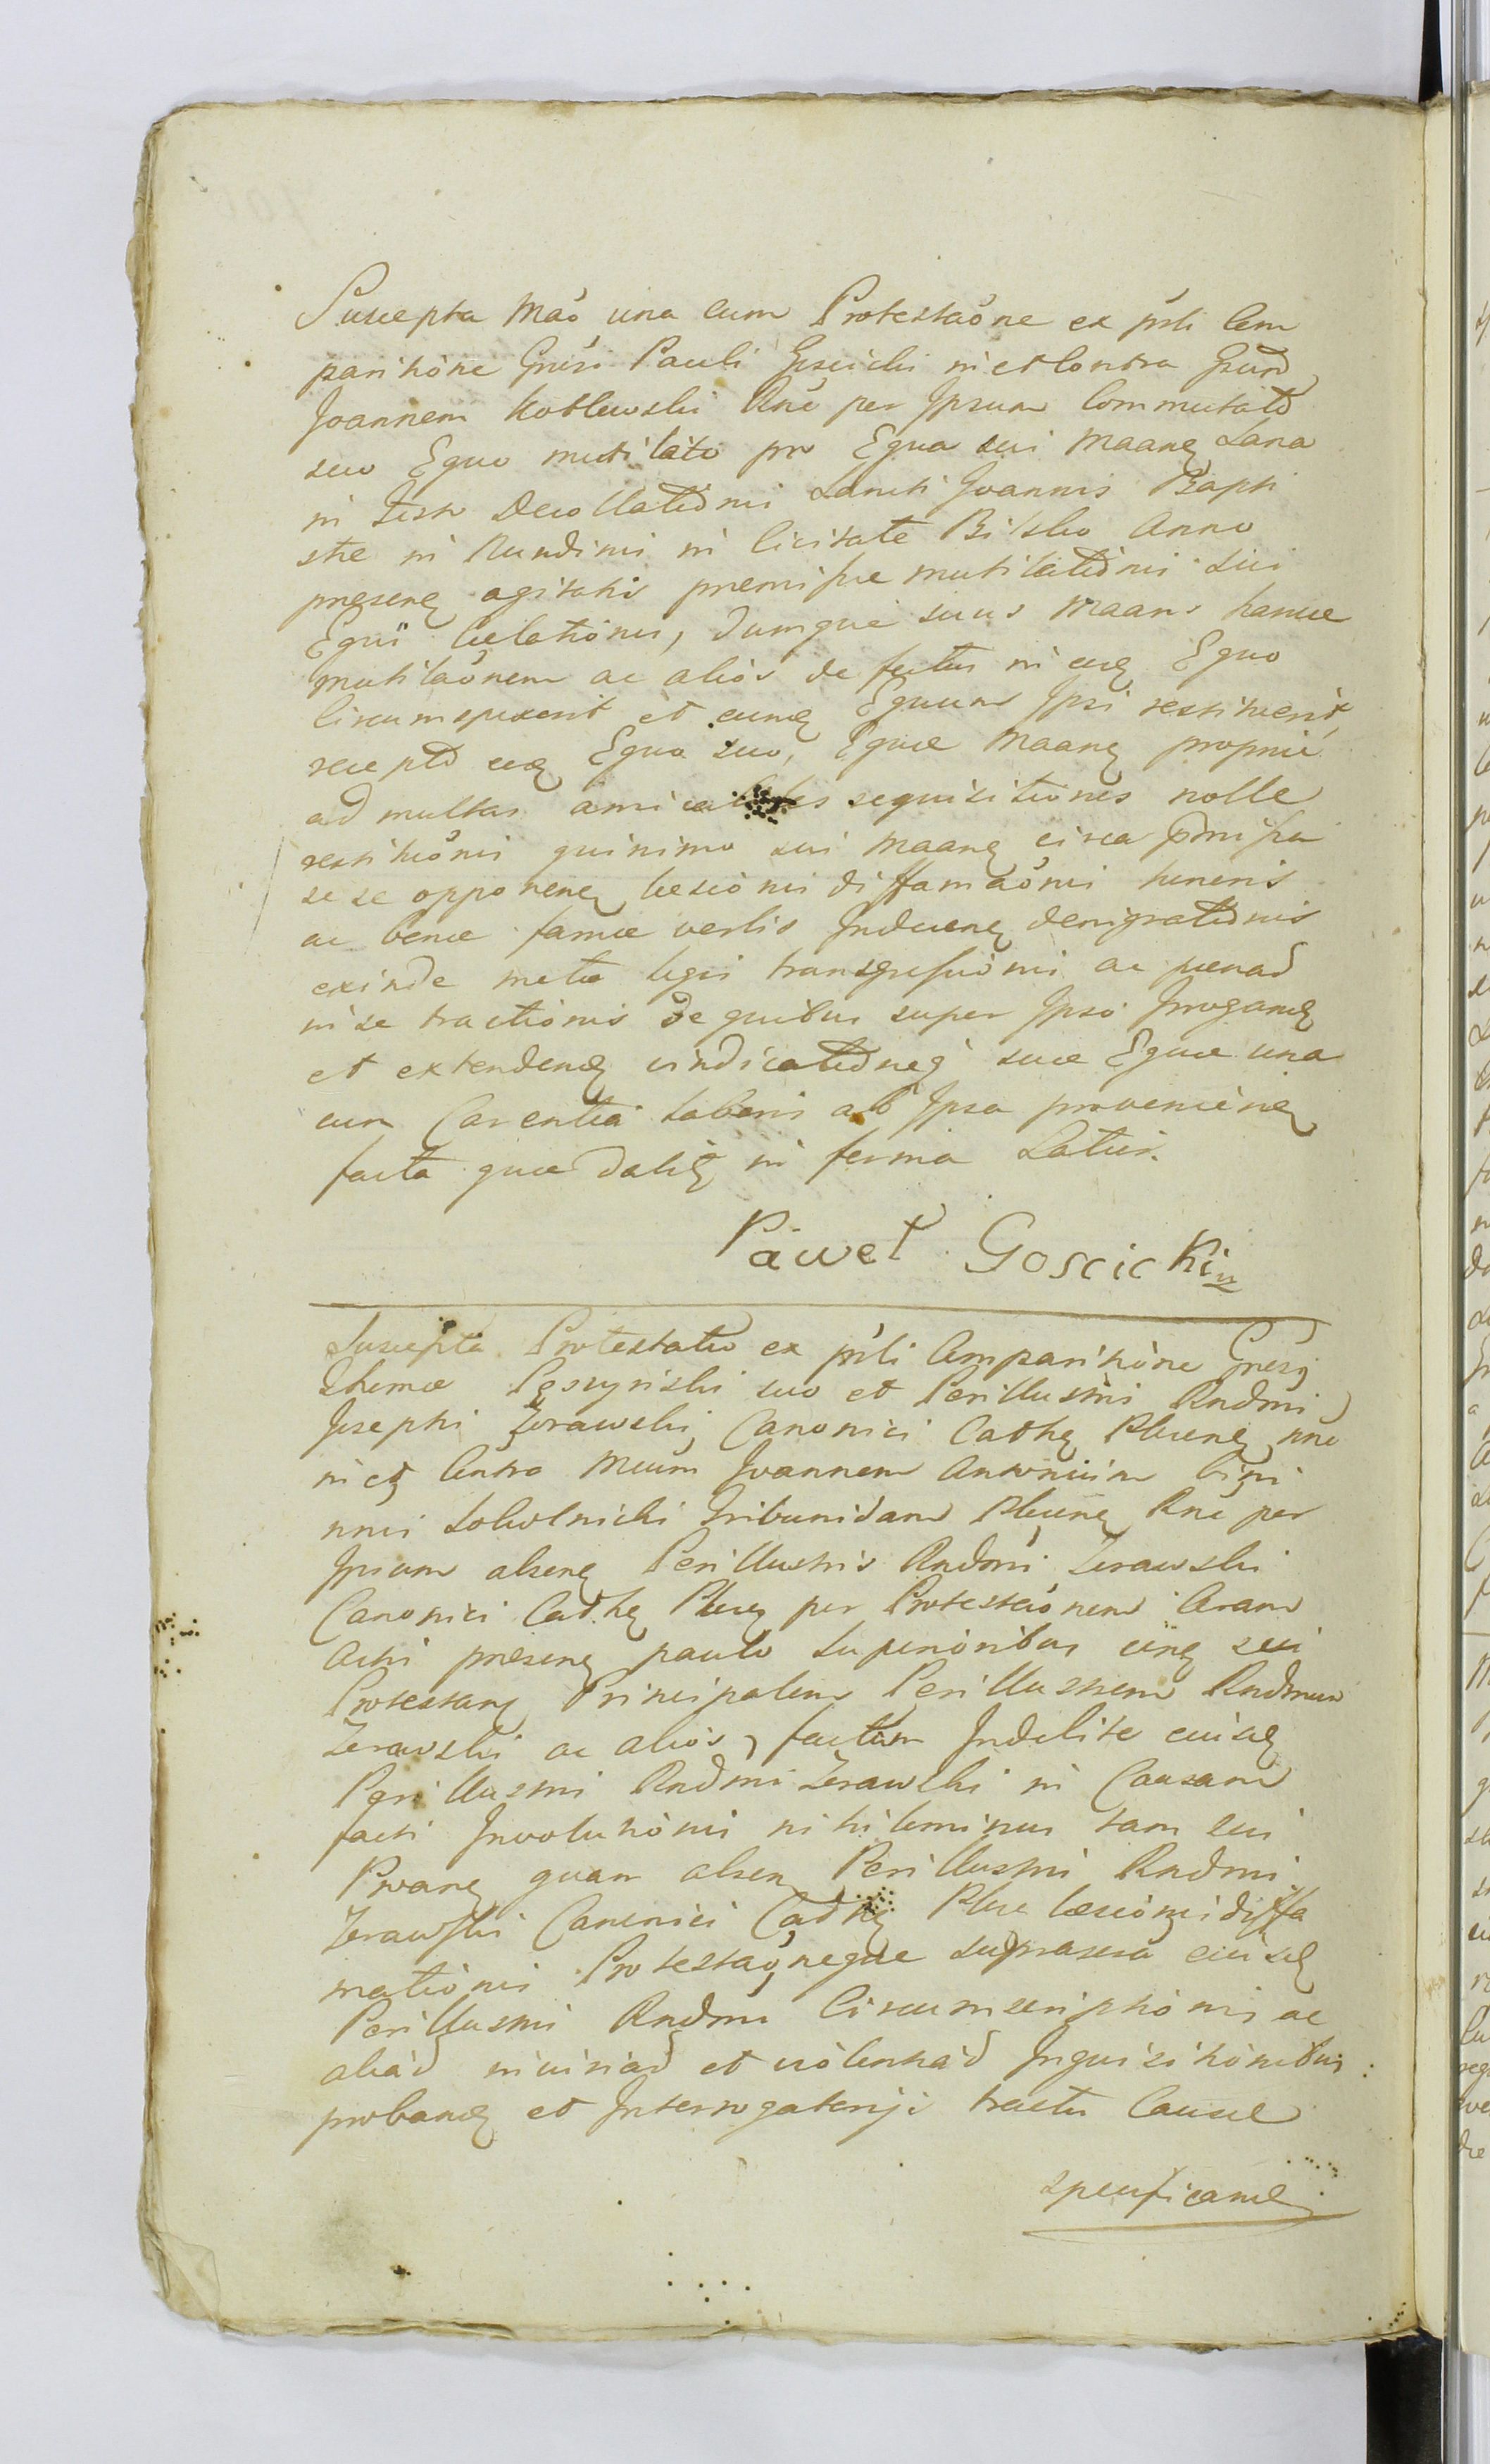 Suscepta Mao una cum Protestaone ex prsti Com
paritione Gnrsi Pauli Goscicki in et Contra Gnrum
Joannem Koblewski Rne per Ipsum Commutato
suo Equo mutilato pro Equa sui Maane Sana
in festo Decollationis Sancti Joannis Bapti
stae in Nundinis in Civitate Bilsko Anno
presene agitatis premissae mutilationis sui
Equi Celationis, dumque suus Maans hance
mutilaonem ac alios defectus in eoe Equo
Circumspexerit et eume Equum Ipsi restituerit,
recepto eoe Equo suo, Equae Maane propriae
ad multas amicabiles requisitiones nolle
restituonis quinimo sui Maane circa prmissa
se se opponene laesionis diffamaonis honoris
ac bonae famae verbis Inducene denigrationis
exinde metae legis transgressionis ac poenad
in se tractionis de quibus super Ipso Irrogane
et extendene vindicationeq suae Equae una
cum Carentia laboris ab Ipsa proveniene
facta quae dabit in forma Latius.
Paweł Goscicki
Suscepta Protestatio ex prsti Comparitione Gnrsi
Thomae Pęszyński suo et Perillustris Rndmi
Josephi Żorawski Canonici Cathe Plocene nne
in et Contra Mcum Joannem Antonium bini
nnis Sokolnicki Tribunidam Plocene Rne per
Ipsum absene Perillustris Rndmi Zorawski
Canonici Cathe Ploce per Protestaonem Coram
Actis presene paulo superioribus une sui
Protestane Principalem Perillustrem Rndmum
Zorawski ac alios, factam Indebite eiusde
Perillustris Rndmi Zorawski in Causam
facti Involutionis nihilominus tam sui
Proane quam absen Perillustris Rndmi
Zorawski Canonici Cathe Ploce laesionis diffa
mationis Protestaonegue suprascra eiusde
Perillustris Rndmi Circumscriptionis ac
aliad iniuriad et violentiad Inquisitionibus
probane et Interrogatorijs tractu Causae
specificane